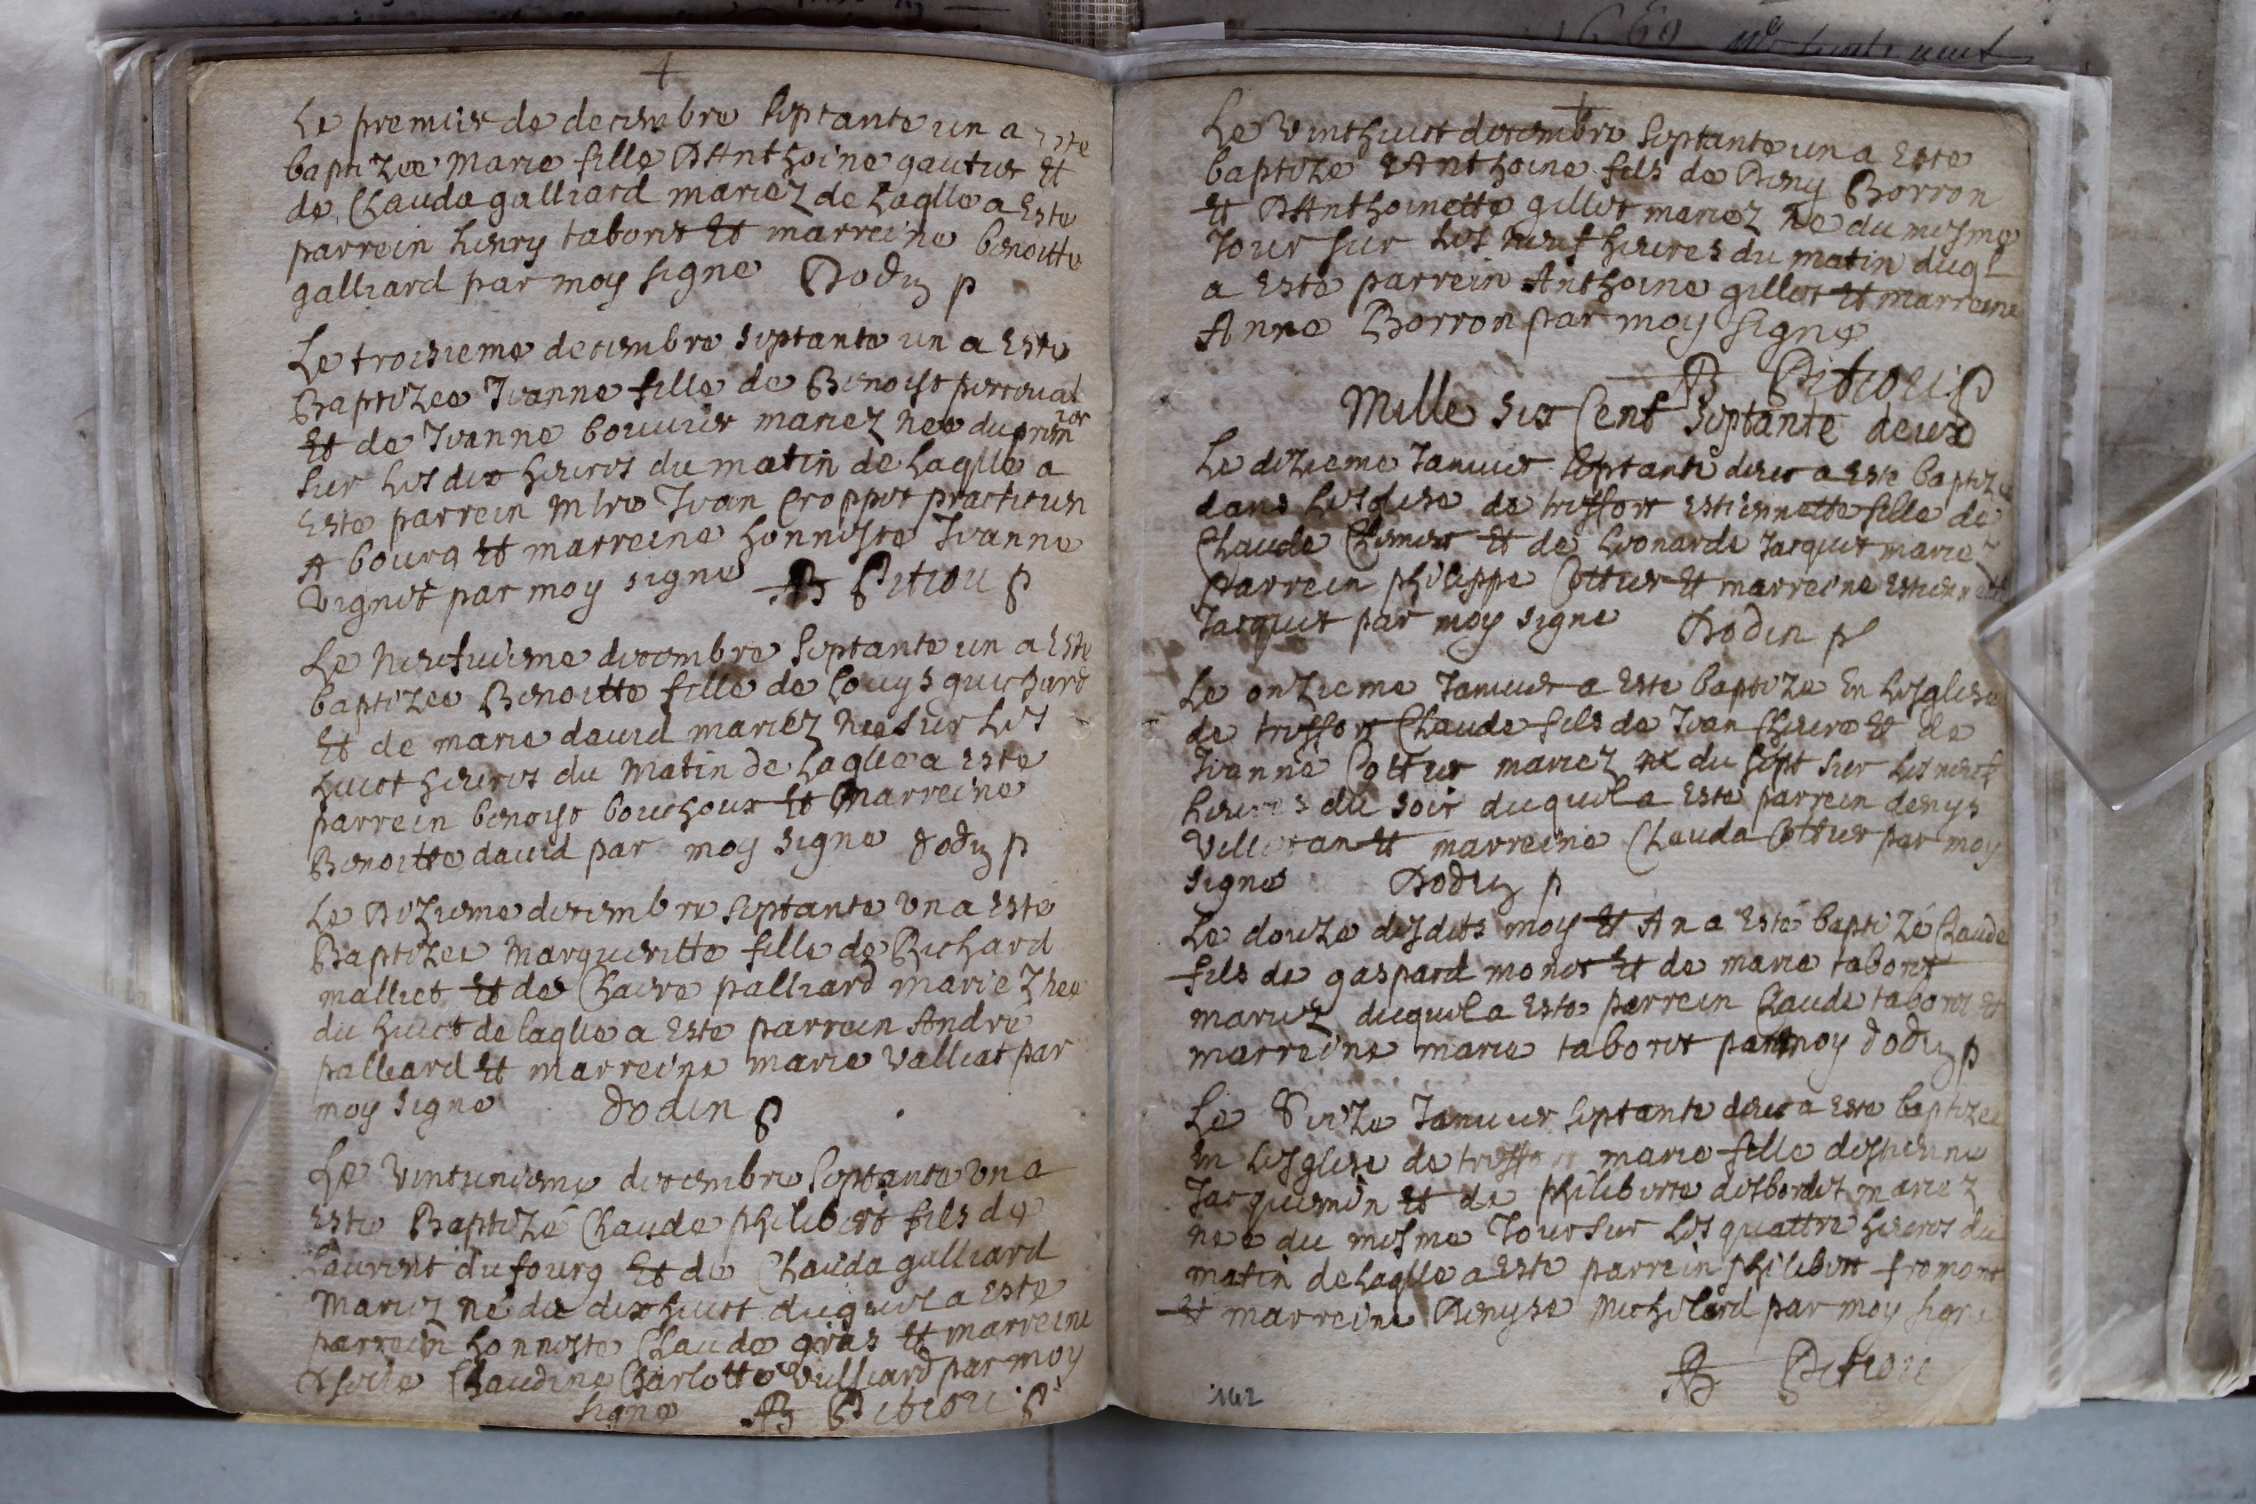 Le premier de decembre septante un a este
baptizee Marie fille D'Anthoine gautier Et
de Clauda galliard mariez de Laqlle a Este
parrein henry taboret Et marreine benoitte
galliard par moy signe Dodin p
Le troisieme decembre septante un a Este
Baptizee Jeanne fille de Benoist perroual
Et de Jeanne bouvier mariez nee du premier
sur les dix heures du matin de Laqlle a
Este parrein Mtre Jean Croppet practicien
A bourg Et marreine honneste Jeanne
Vignet par moy signe AB Pitiou p
Le neufvieme decembre septante un a Este
baptizee Benoitte fille de Louys guichard
Et de marie david mariez nee sur Les
huict heures du Matin de Laqlle a Este
parrein benoist bouchoux Et Marreine
Benoitte david par moy signe dodin p
Le Dizieme decembre septante un a Este
Baptizee Margueritte fille de Richard
malliet Et de Claire palliard mariez nee
du huict de laqlle a Este parrein André
palliard Et marreine marie valliat par
moy signe dodin p
Le vintunieme decembre septante un a
Este Baptizé Claude philibert fils de
Laurent dufourg Et de Clauda galliard
Mariez né du dixhuict duquel a Este
parrein honneste Claude gras Et marreine
Dsoile Claudine Charlotte Vulliard par moy
signe AB Pitiou p
Le vinthuict decembre septante un a Este
baptize Anthoine fils de Deny Borron
Et D'Anthoinette gillet mariez ne du mesme
Jour sur Les neuf heures du matin duql
a Este parrein Anthoine gillet Et marreine
Anne Borron par moy signe
AB Pitiou p
Mille six Cent septante deux
Le dizieme Januier septante deux a este baptize
dans Lesglise de treffort estiennette fille de
Claude Chenest Et de Leonarde Jacquet mariez
parrein philippe Cottier Et marreine estiennette
Jacquet par moy signe Dodin p
Le onzieme Januier a este baptize En Lesglise
de treffort Claude fils de Jean Claire Et de
Jeanne Cottier mariez né du sept sur Les neuf
heures du soir duquel a este parrein denys
Et marreine Clauda Cottier par moy
signe Dodin p
Le douze desdits moy Et An a Esté baptizé Claude
fils de gaspard monet Et de marie taboret
mariez duquel a Este parrein Claude taboret Et
marreine marie taboret par moy dodin p
Le Seize Januier septante deux a este baptizee
En Lesglise de treffort marie fille destienne
Jacquemin Et de philiberte desbordes mariez
nee du mesme Jour sur Les quattre heures du
matin de Laqlle a Este parrein philibert fromont
Et marreine Denyse Michelard par moy signe
AB Pitiou
162